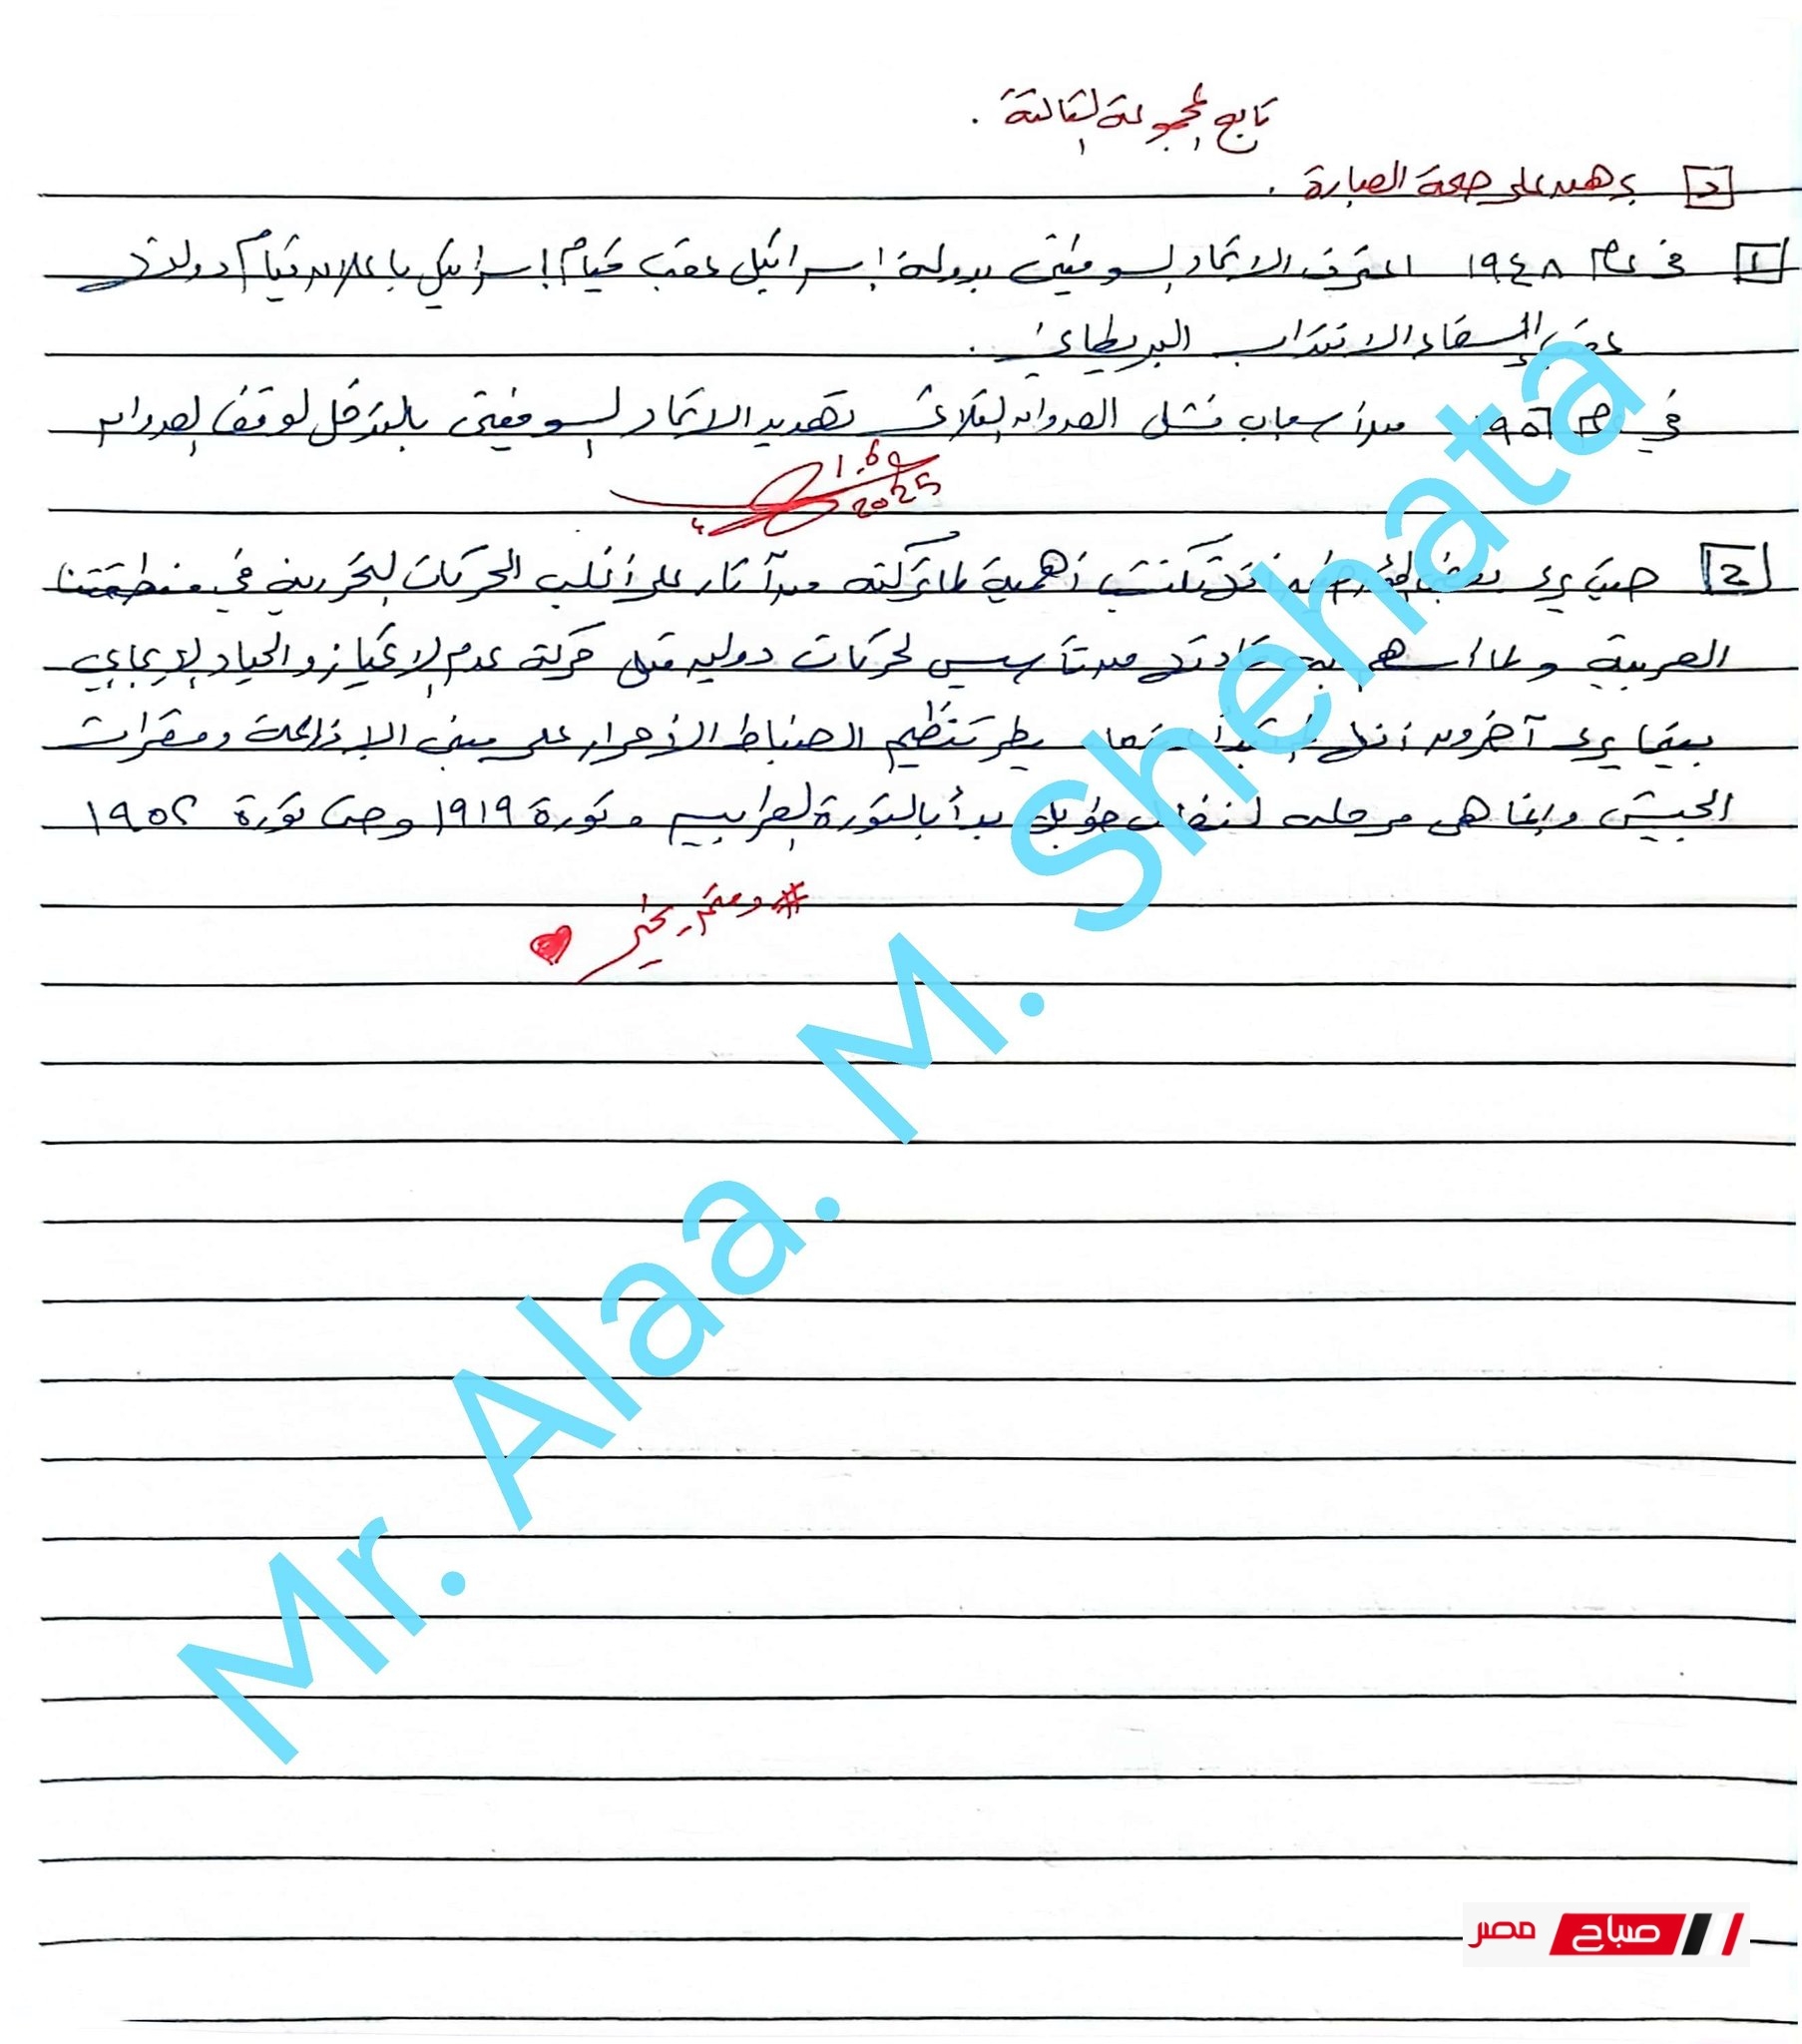 تابع المجموعة الثالثة .
د برهن على صحة العبارة .
1 فى عام ١٩٤٨ اعترف الاتحاد السوفيتى بدولة إسرائيل عقب قيام إسرائيل بإعلان قيام دولتها
عقب إلغاء الانتداب البريطانى .
فى عام ١٩٥٦ من أسباب فشل العدوان الثلاثى تهديد الاتحاد السوفيتى بالتدخل لوقف العدوان
1.6
2025
2 حيث يرى بعض المؤرخين أهمية لما تركته من آثار على أغلب الحركات التحررية فى منطقتنا
العربية ولما أسهم به قادتها من تأسيس لحركات دولية مثل حركة عدم الإنحياز والحياد الإيجابى
بينما يرى آخرون تنظيم الضباط الأحرار على مبنى الإذاعة ومقرات
الجيش وإنما هى مرحلة لنضال طويل بدأ بالثورة العرابية وثورة ١٩١٩ وحتى ثورة ١٩٥٢
#دمتم بخير
Mr. Alaa. M. Shehata
صباح مصر